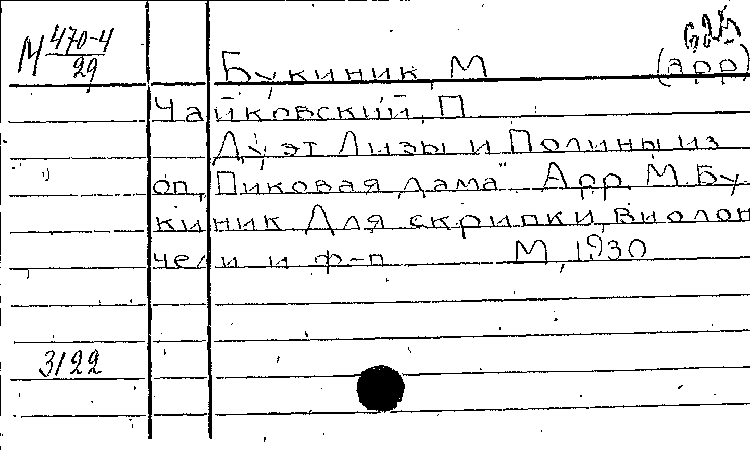 М 470-4
29
625
Букиник, М (арр)
Чайковский, П.
Дуэт Лизы и Полины из
оп. "Пиковая дама". Арр. М. Бу
киник. Для скрипки, виолон
чели и ф-п М, 1930
3122